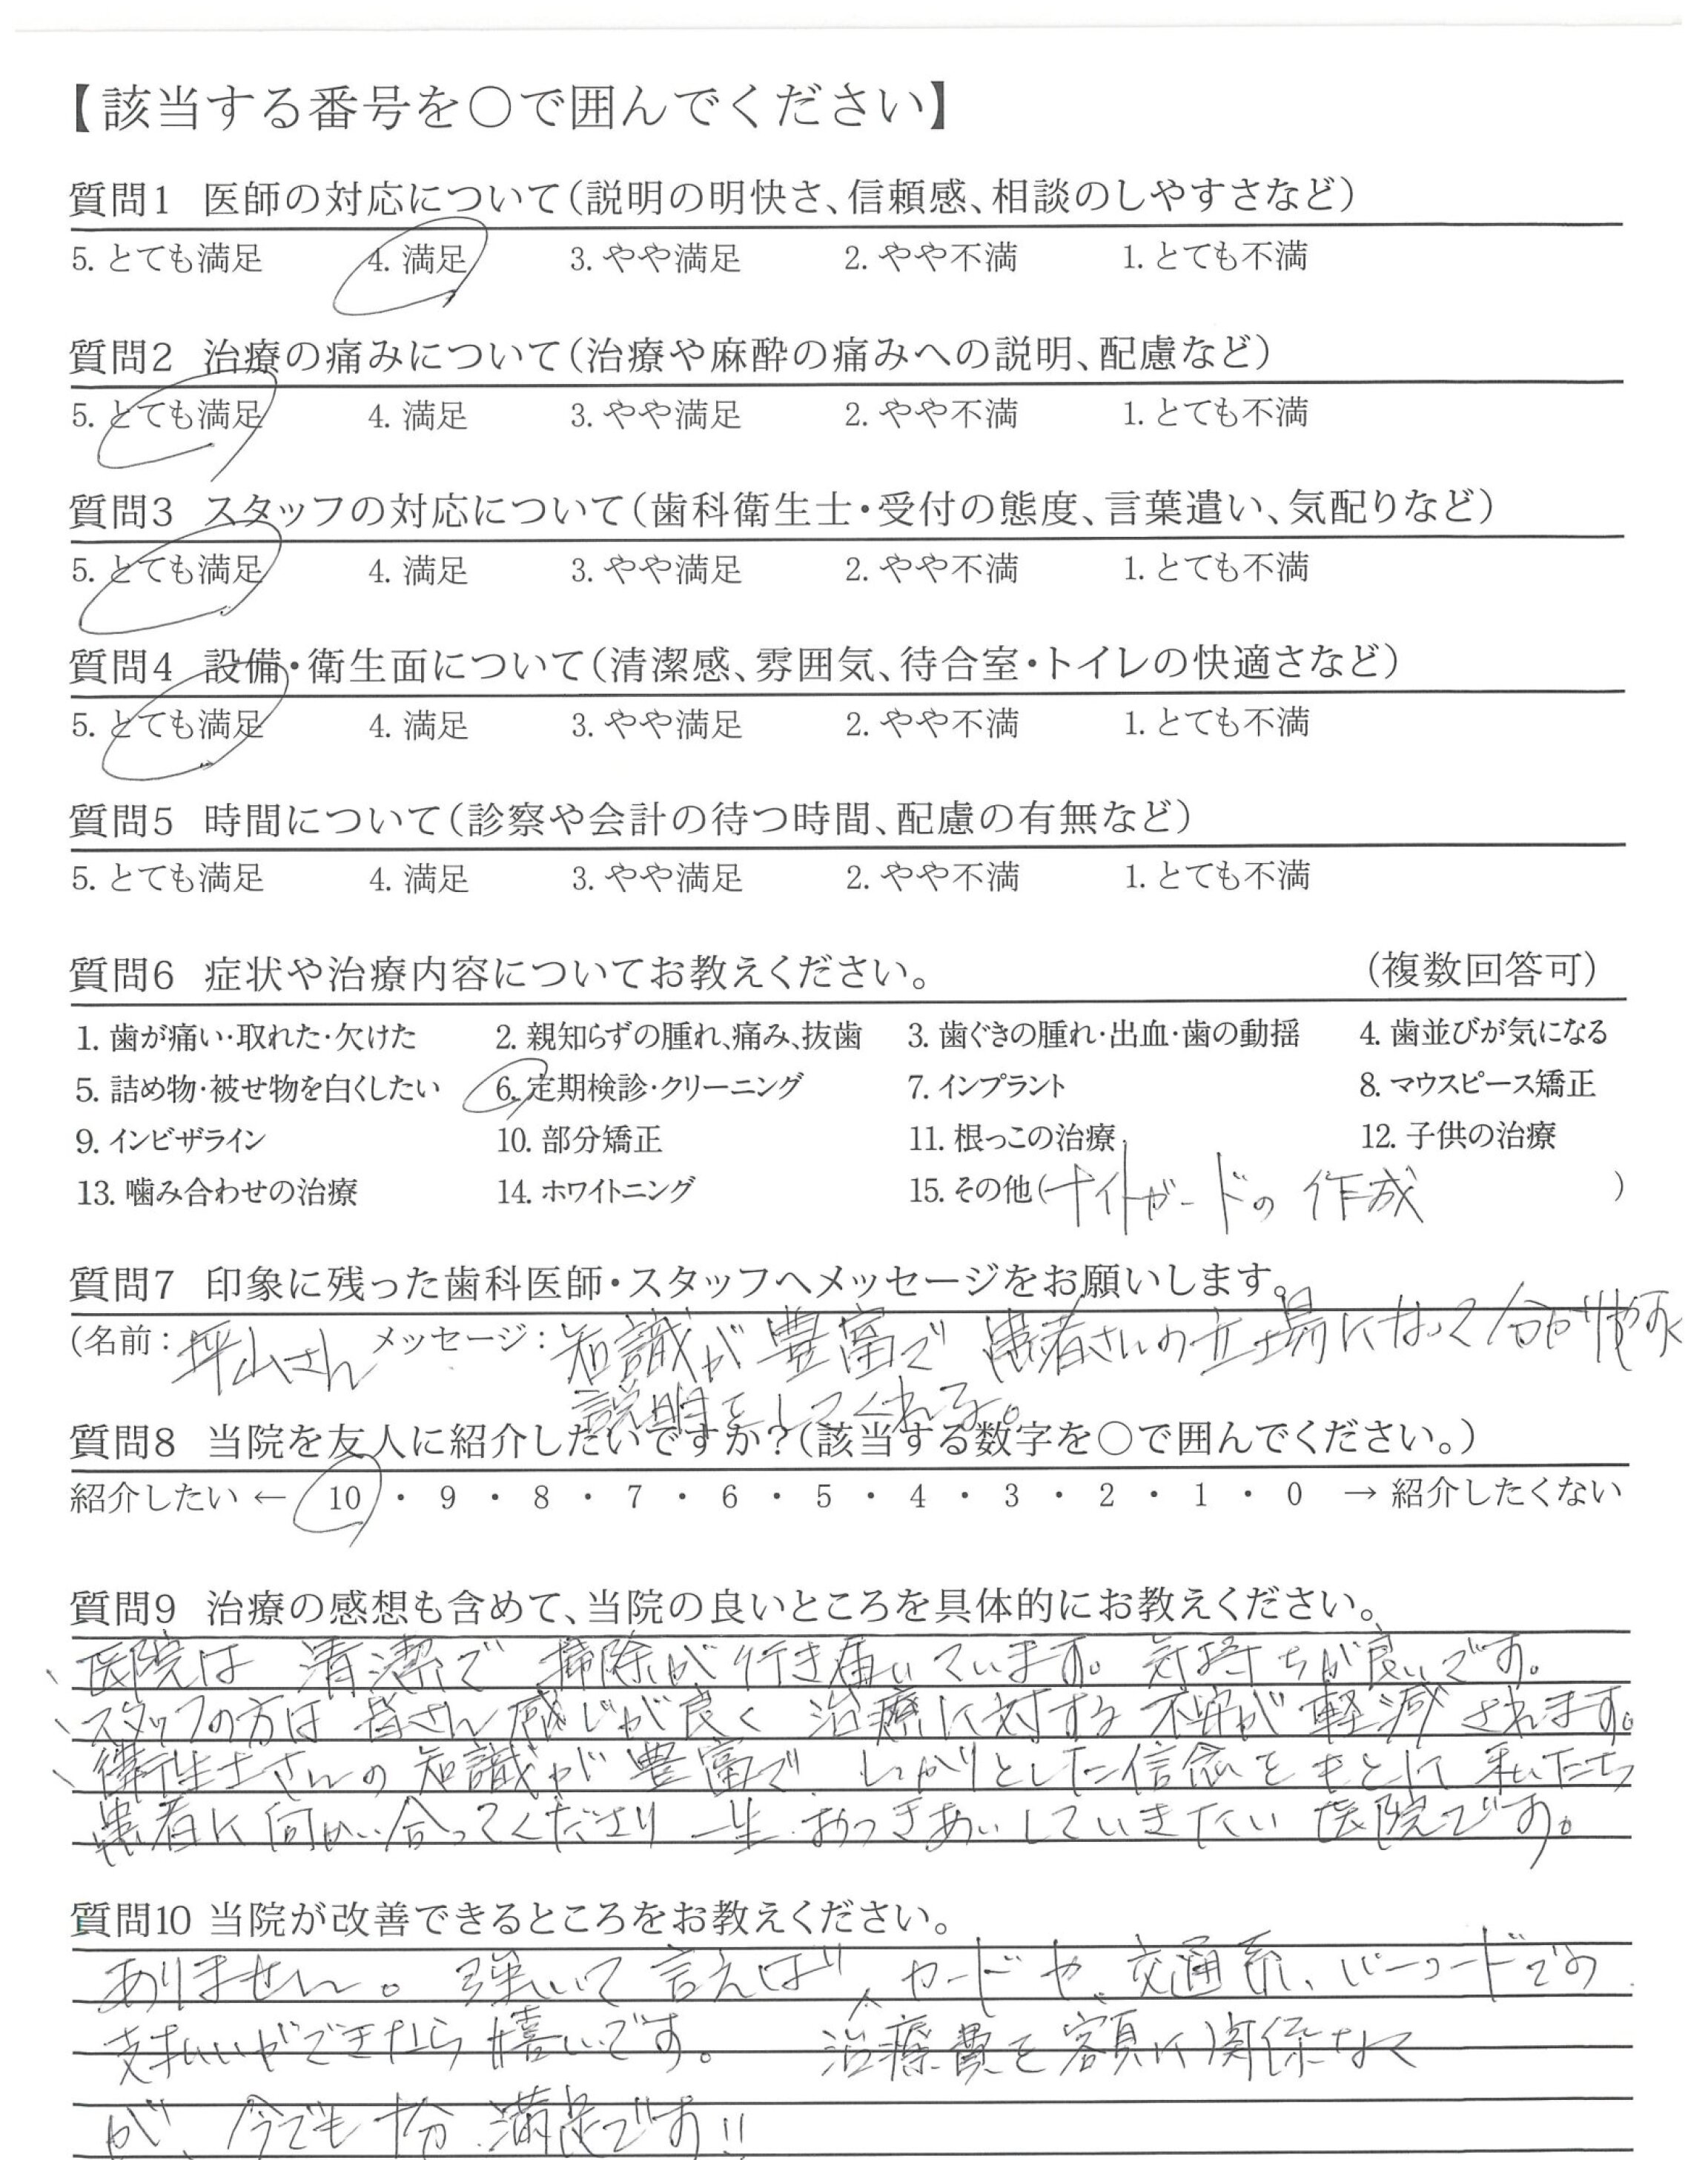 【該当する番号を○で囲んでください】
質問1 医師の対応について(説明の明快さ、信頼感、相談のしやすさなど)
5. とても満足 4. 満足 3. やや満足 2. やや不満 1. とても不満
質問2 治療の痛みについて(治療や麻酔の痛みへの説明、配慮など)
5. とても満足 4. 満足 3. やや満足 2. やや不満 1. とても不満
質問3 スタッフの対応について(歯科衛生士・受付の態度、言葉遣い、気配りなど)
5. とても満足 4. 満足 3. やや満足 2. やや不満 1. とても不満
質問4 設備・衛生面について(清潔感、雰囲気、待合室・トイレの快適さなど)
5. とても満足 4. 満足 3. やや満足 2. やや不満 1. とても不満
質問5 時間について(診察や会計の待つ時間、配慮の有無など)
5. とても満足 4. 満足 3. やや満足 2. やや不満 1. とても不満
質問6 症状や治療内容についてお教えください。 (複数回答可)
1. 歯が痛い・取れた・欠けた 2. 親知らずの腫れ、痛み、抜歯 3. 歯ぐきの腫れ・出血・歯の動揺 4. 歯並びが気になる
5. 詰め物・被せ物を白くしたい 6. 定期検診・クリーニング 7. インプラント 8. マウスピース矯正
9. インビザライン 10. 部分矯正 11. 根っこの治療 12. 子供の治療
13. 噛み合わせの治療 14. ホワイトニング 15. その他(ナイトガードの 作成 )
質問7 印象に残った歯科医師・スタッフへメッセージをお願いします。
(名前: 坪山さん メッセージ: 知識が豊富で 患者さんの立場になって
説明をしてくれる。
質問8 当院を友人に紹介したいですか?(該当する数字を○で囲んでください。)
紹介したい ← 10 ・ 9 ・ 8 ・ 7 ・ 6 ・ 5 ・ 4 ・ 3 ・ 2 ・ 1 ・ 0 → 紹介したくない
質問9 治療の感想も含めて、当院の良いところを具体的にお教えください。
、医院は 清潔で 掃除が行き届いています。気持ちが良いです。
、スタッフの方は 皆さん感じが良く 治療に対する 不安が 軽減 されます。
、衛生士さんの 知識が 豊富で しっかりとした信念をもとに 私たち
患者に向い合ってくださり 一生 おつきあいしていきたい 医院です。
質問10 当院が改善できるところをお教えください。
ありません。 強いて 言えば カードや、交通系、バーコードでの
支払いができたら嬉しいです。 治療費を額に関係なく
が、今でも 十分 満足です!!